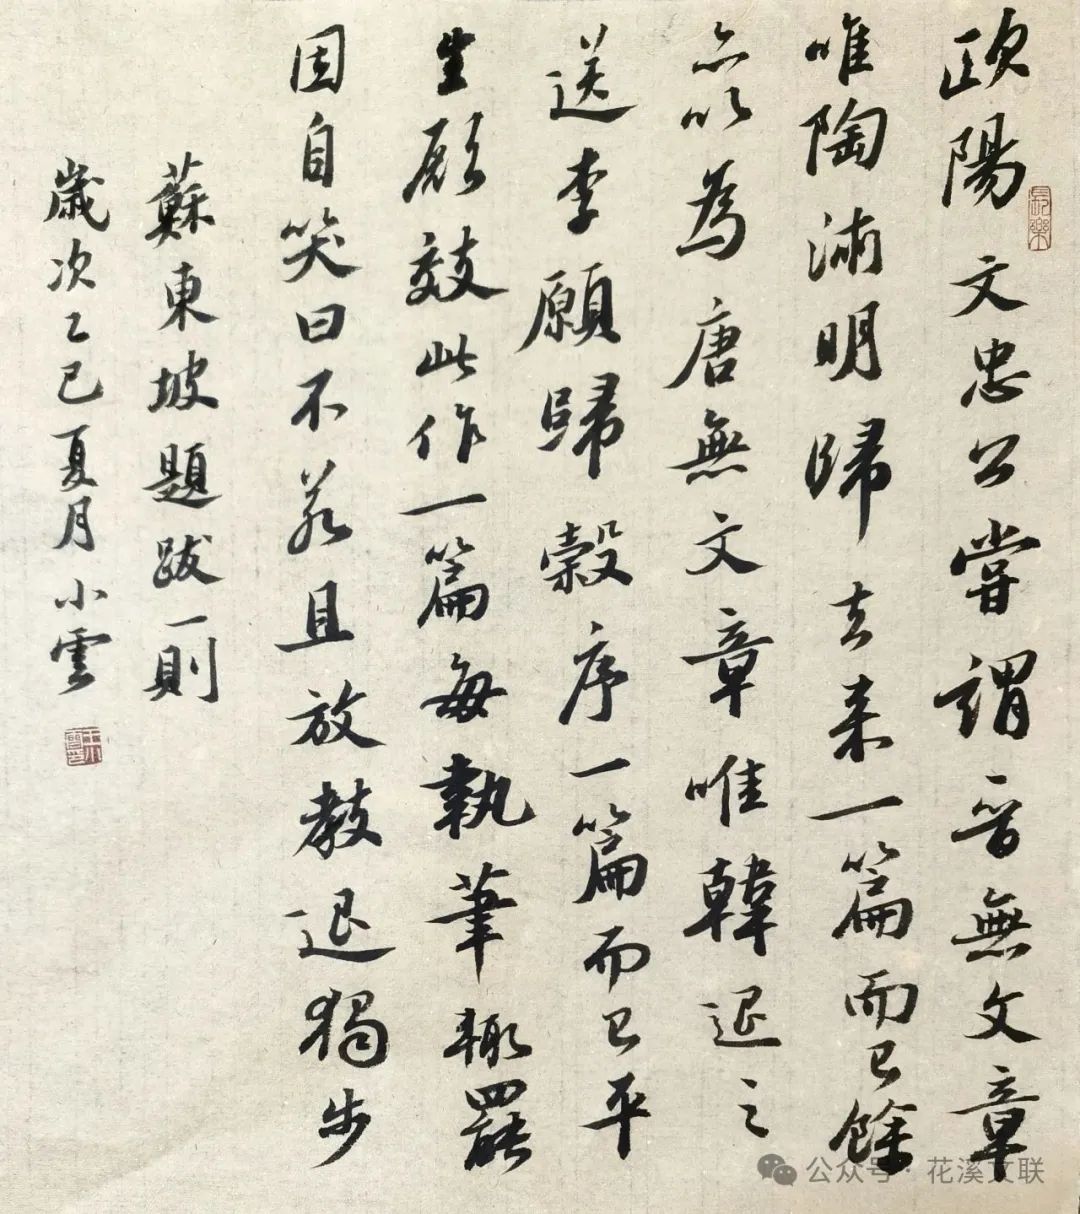 歐陽文忠公嘗謂晉無文章
唯陶淵明歸去來一篇而已餘
亦以為唐無文章唯韓退之
送李願歸穀序一篇而已平
生願效此作一篇每執筆輒罷
因自笑曰不若且放教退獨步
蘇東坡題跋一則
歲次乙巳夏月小雲
長樂
公众号·花溪文联